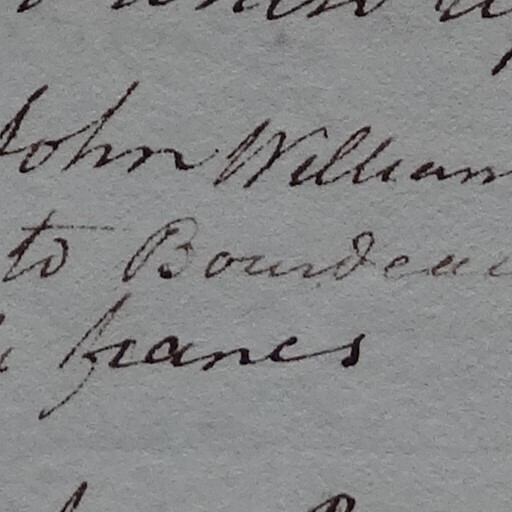 John William
to Bourdeau
francs